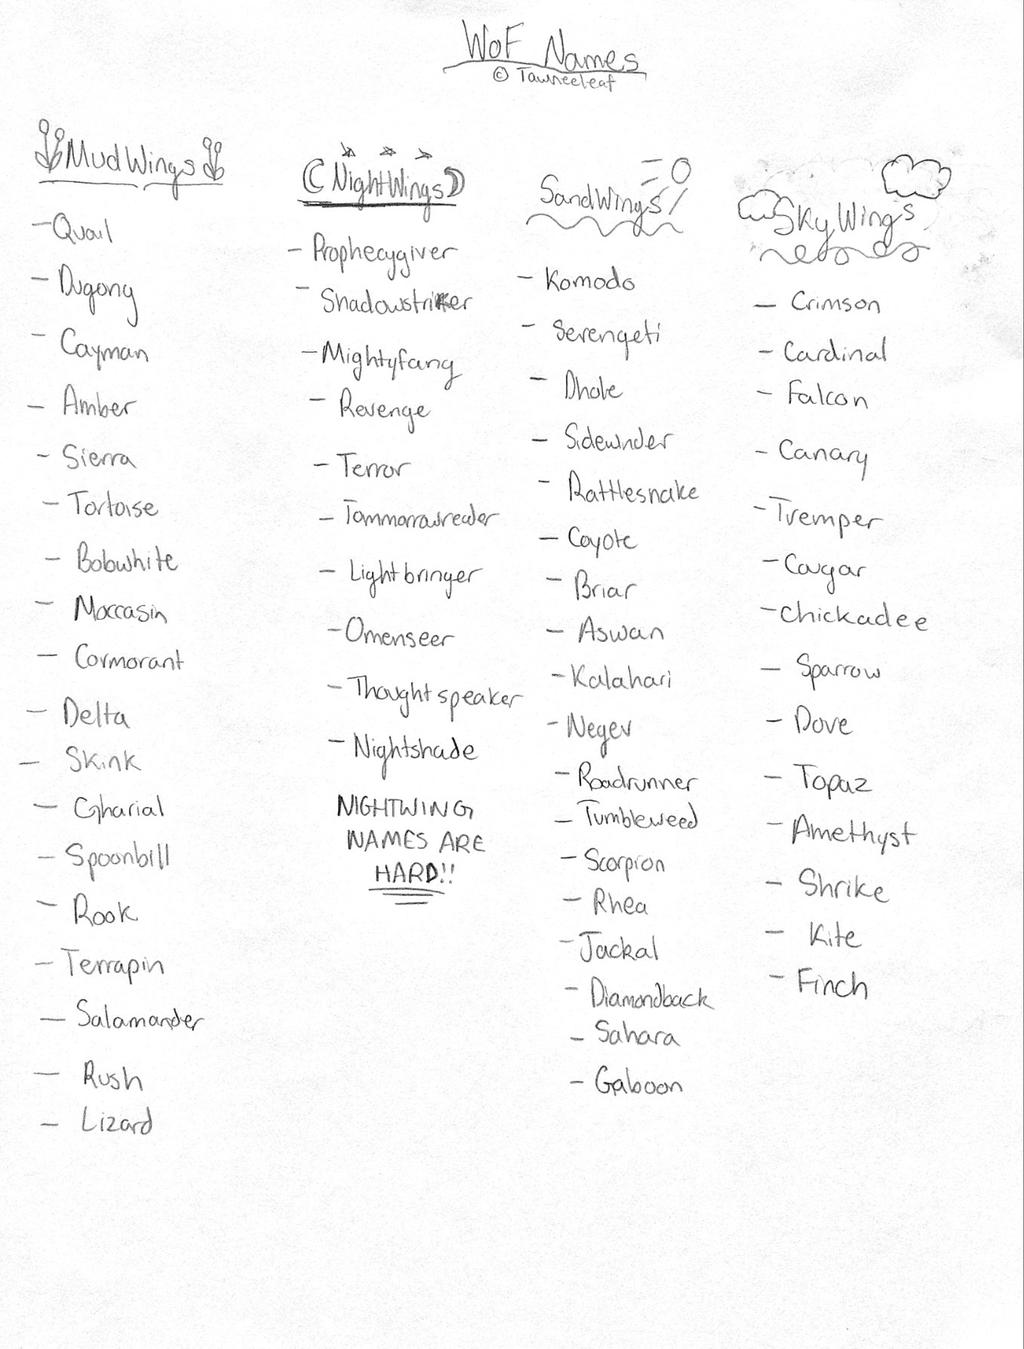 WoF Names
© Tawneeleaf
MudWings
- Quail
- Dugong
- Cayman
- Amber
- Sierra
- Tortoise
- Bobwhite
- Moccasin
- Cormorant
- Delta
- Skink
- Gharial
- Spoonbill
- Rook
- Terrapin
- Salamander
- Rush
- Lizard
NightWings
- Prophecygiver
- Shadowstriker
- Mightyfang
- Revenge
- Terror
- Tommorrowreader
- Lightbringer
- Omenseer
- Thoughtspeaker
- Nightshade
NIGHTWING
NAMES ARE
HARD!!
SandWings
- Komodo
- Serengeti
- Dhole
- Sidewinder
- Rattlesnake
- Coyote
- Briar
- Aswan
- Kalahari
- Negev
- Roadrunner
- Tumbleweed
- Scorpion
- Rhea
- Jackal
- Diamondback
- Sahara
- Gaboon
SkyWings
- Crimson
- Cardinal
- Falcon
- Canary
- Tremper
- Cougar
- Chickadee
- Sparrow
- Dove
- Topaz
- Amethyst
- Shrike
- Kite
- Finch